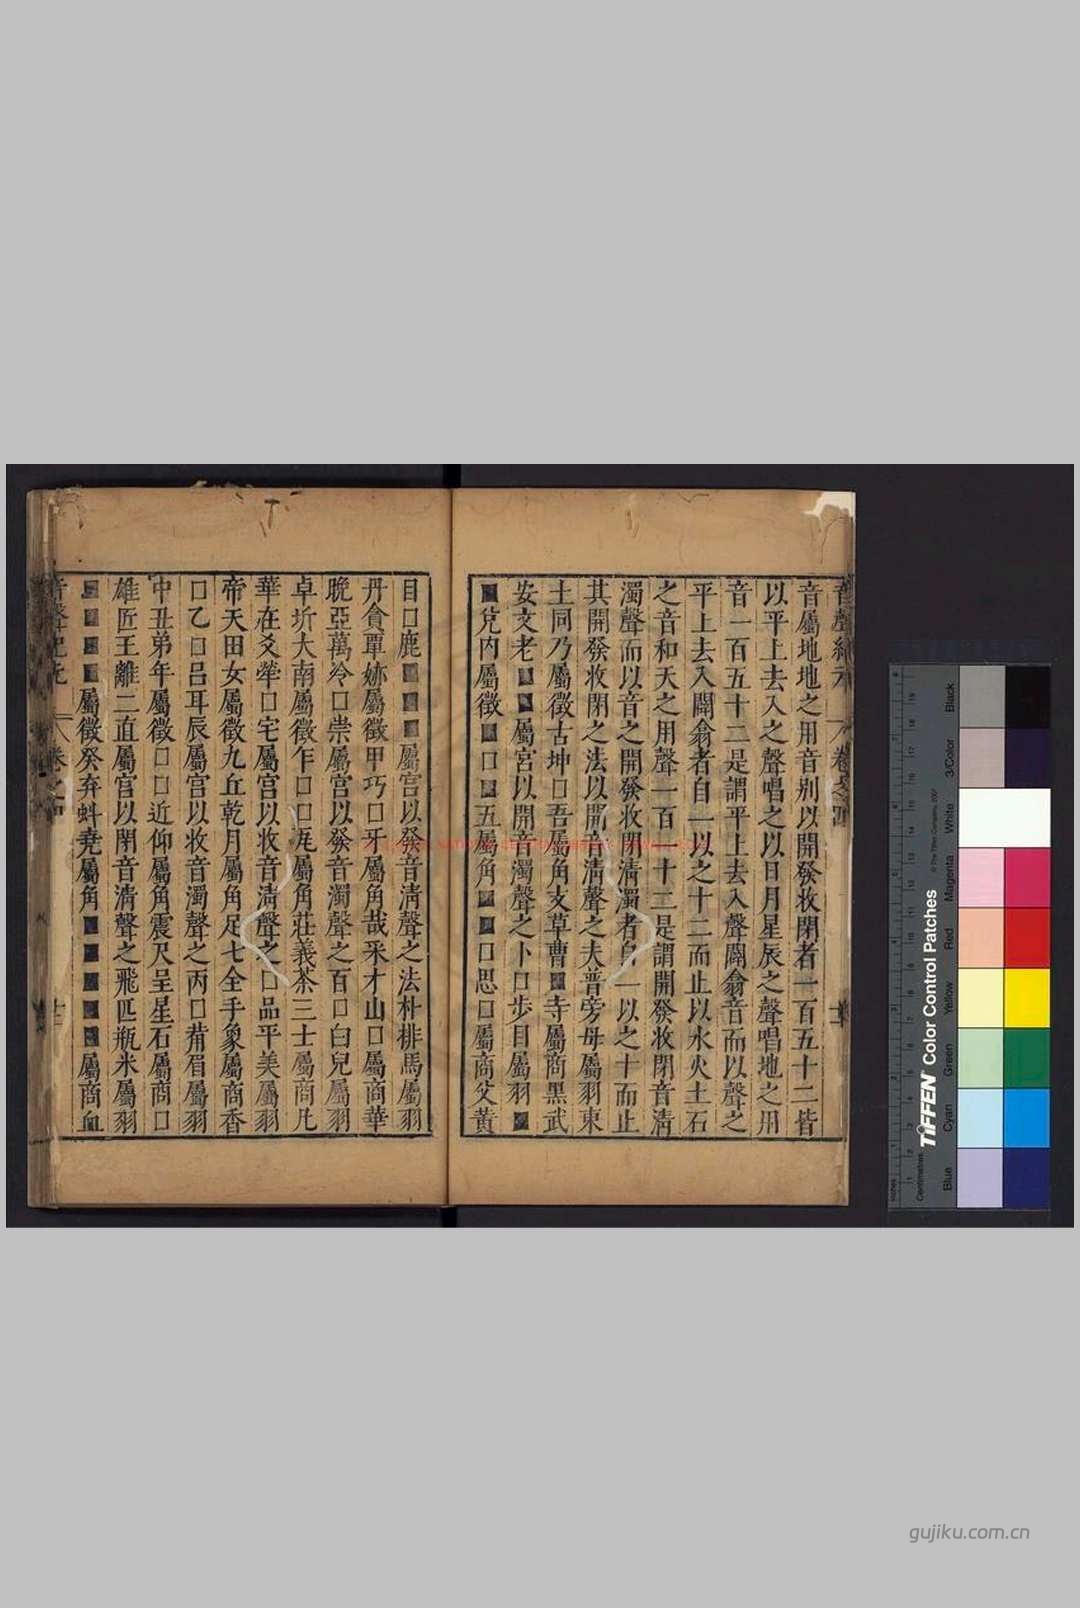 音屬地地之用音别以開發收閉者一百五十二皆
以平上去入之聲唱之以日月星辰之聲唱地之用
音一百五十二是謂平上去入聲闢翕音而以聲之
平上去入闢翕者自一以之十二而止以水火土石
之音和天之用聲一百一十二是謂開發收閉音清
濁聲而以音之開發收閉清濁者自一以之十而止
其開發收閉之法以開音清聲之夫普旁母屬羽東
土同乃屬徵古坤□吾屬角支草曹■寺屬商黑武
安文老■■屬宮以開音濁聲之卜□步目屬羽■
■兌内屬徵■□■五屬角■■□思□屬商父黃
目□鹿■■■屬宫以發音清聲之法朴排馬屬羽
丹貪覃㚷屬徵甲巧□牙屬角哉采才山□屬商華
晚亞萬冷□崇屬宫以發音濁聲之百□白皃屬羽
卓坼大南屬徵乍□□厇屬角莊義茶三士屬商凡
華在爻犖□宅屬宫以收音清聲之□品平美屬羽
帝天田女屬徵九丘乾月屬角足七全手象屬商香
□乙□呂耳辰屬宫以收音濁聲之丙□葡眉屬羽
中丑弟年屬徵□□近仰屬角震尺呈星石屬商□
雄匠王離二直屬宫以閉音清聲之飛匹瓶米屬羽
■■■■屬徵癸弃蚪堯屬角■■■■■屬商血
音聲紀元
卷之四
TIFFEN Color Control Patches
© The Tiffen Company, 2007
Inches
Centimetres
Blue
Cyan
Green
Yellow
Red
Magenta
White
3/Color
Black
gujiku.com.cn